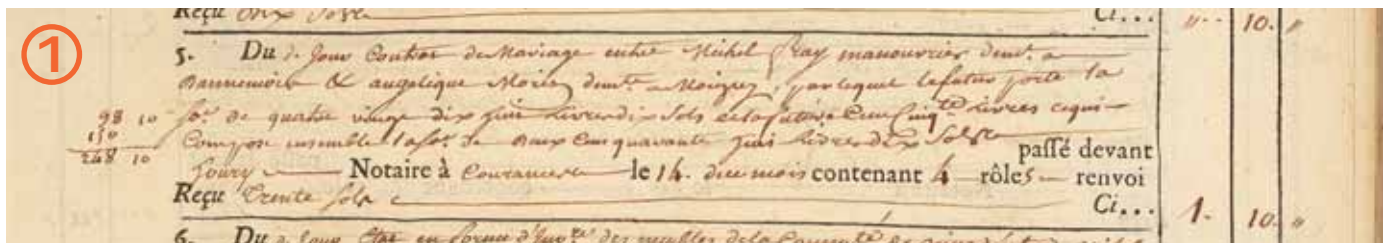 ①
Reçu dix Sols Ci... " 10. "
5. Du d. Jour Contrat de Mariage entre Michel Ray manouvrier demt. a
Dannemois & angelique Moriz demte. a Moigny, par lequel le futur porte la
98 10 So.e de quatre vingt dix huit Livres dix Sols et la future Cent Cinqte. Livres ce qui
150 Compose ensemble la So.e de Deux Cent quarante huit Livres dix Sols
248 10 passé devant
Notaire à Courances le 14. du mois contenant 4 rôles renvoi
Reçu Trente Sols Ci... 1. 10. "
6. Du d. Jour Etat en forme d'Inv.re des meubles de la Commté. de